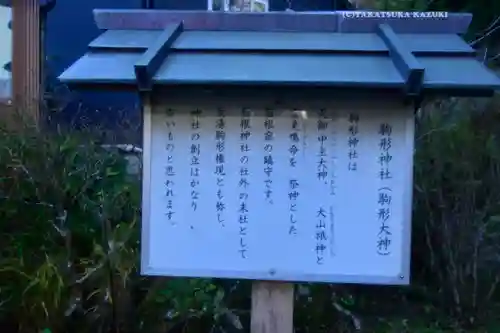 (C)TAKATSUKA KAZUKI
駒形神社(駒形大神)
駒形神社は
天御中主大神、大山祇神と
素嗚命を 祭神とした
箱根宿の鎮守です。
箱根神社の社外の末社として
荒湯駒形権現とも称し、
神社の創立はかなり、
古いものと思われます。